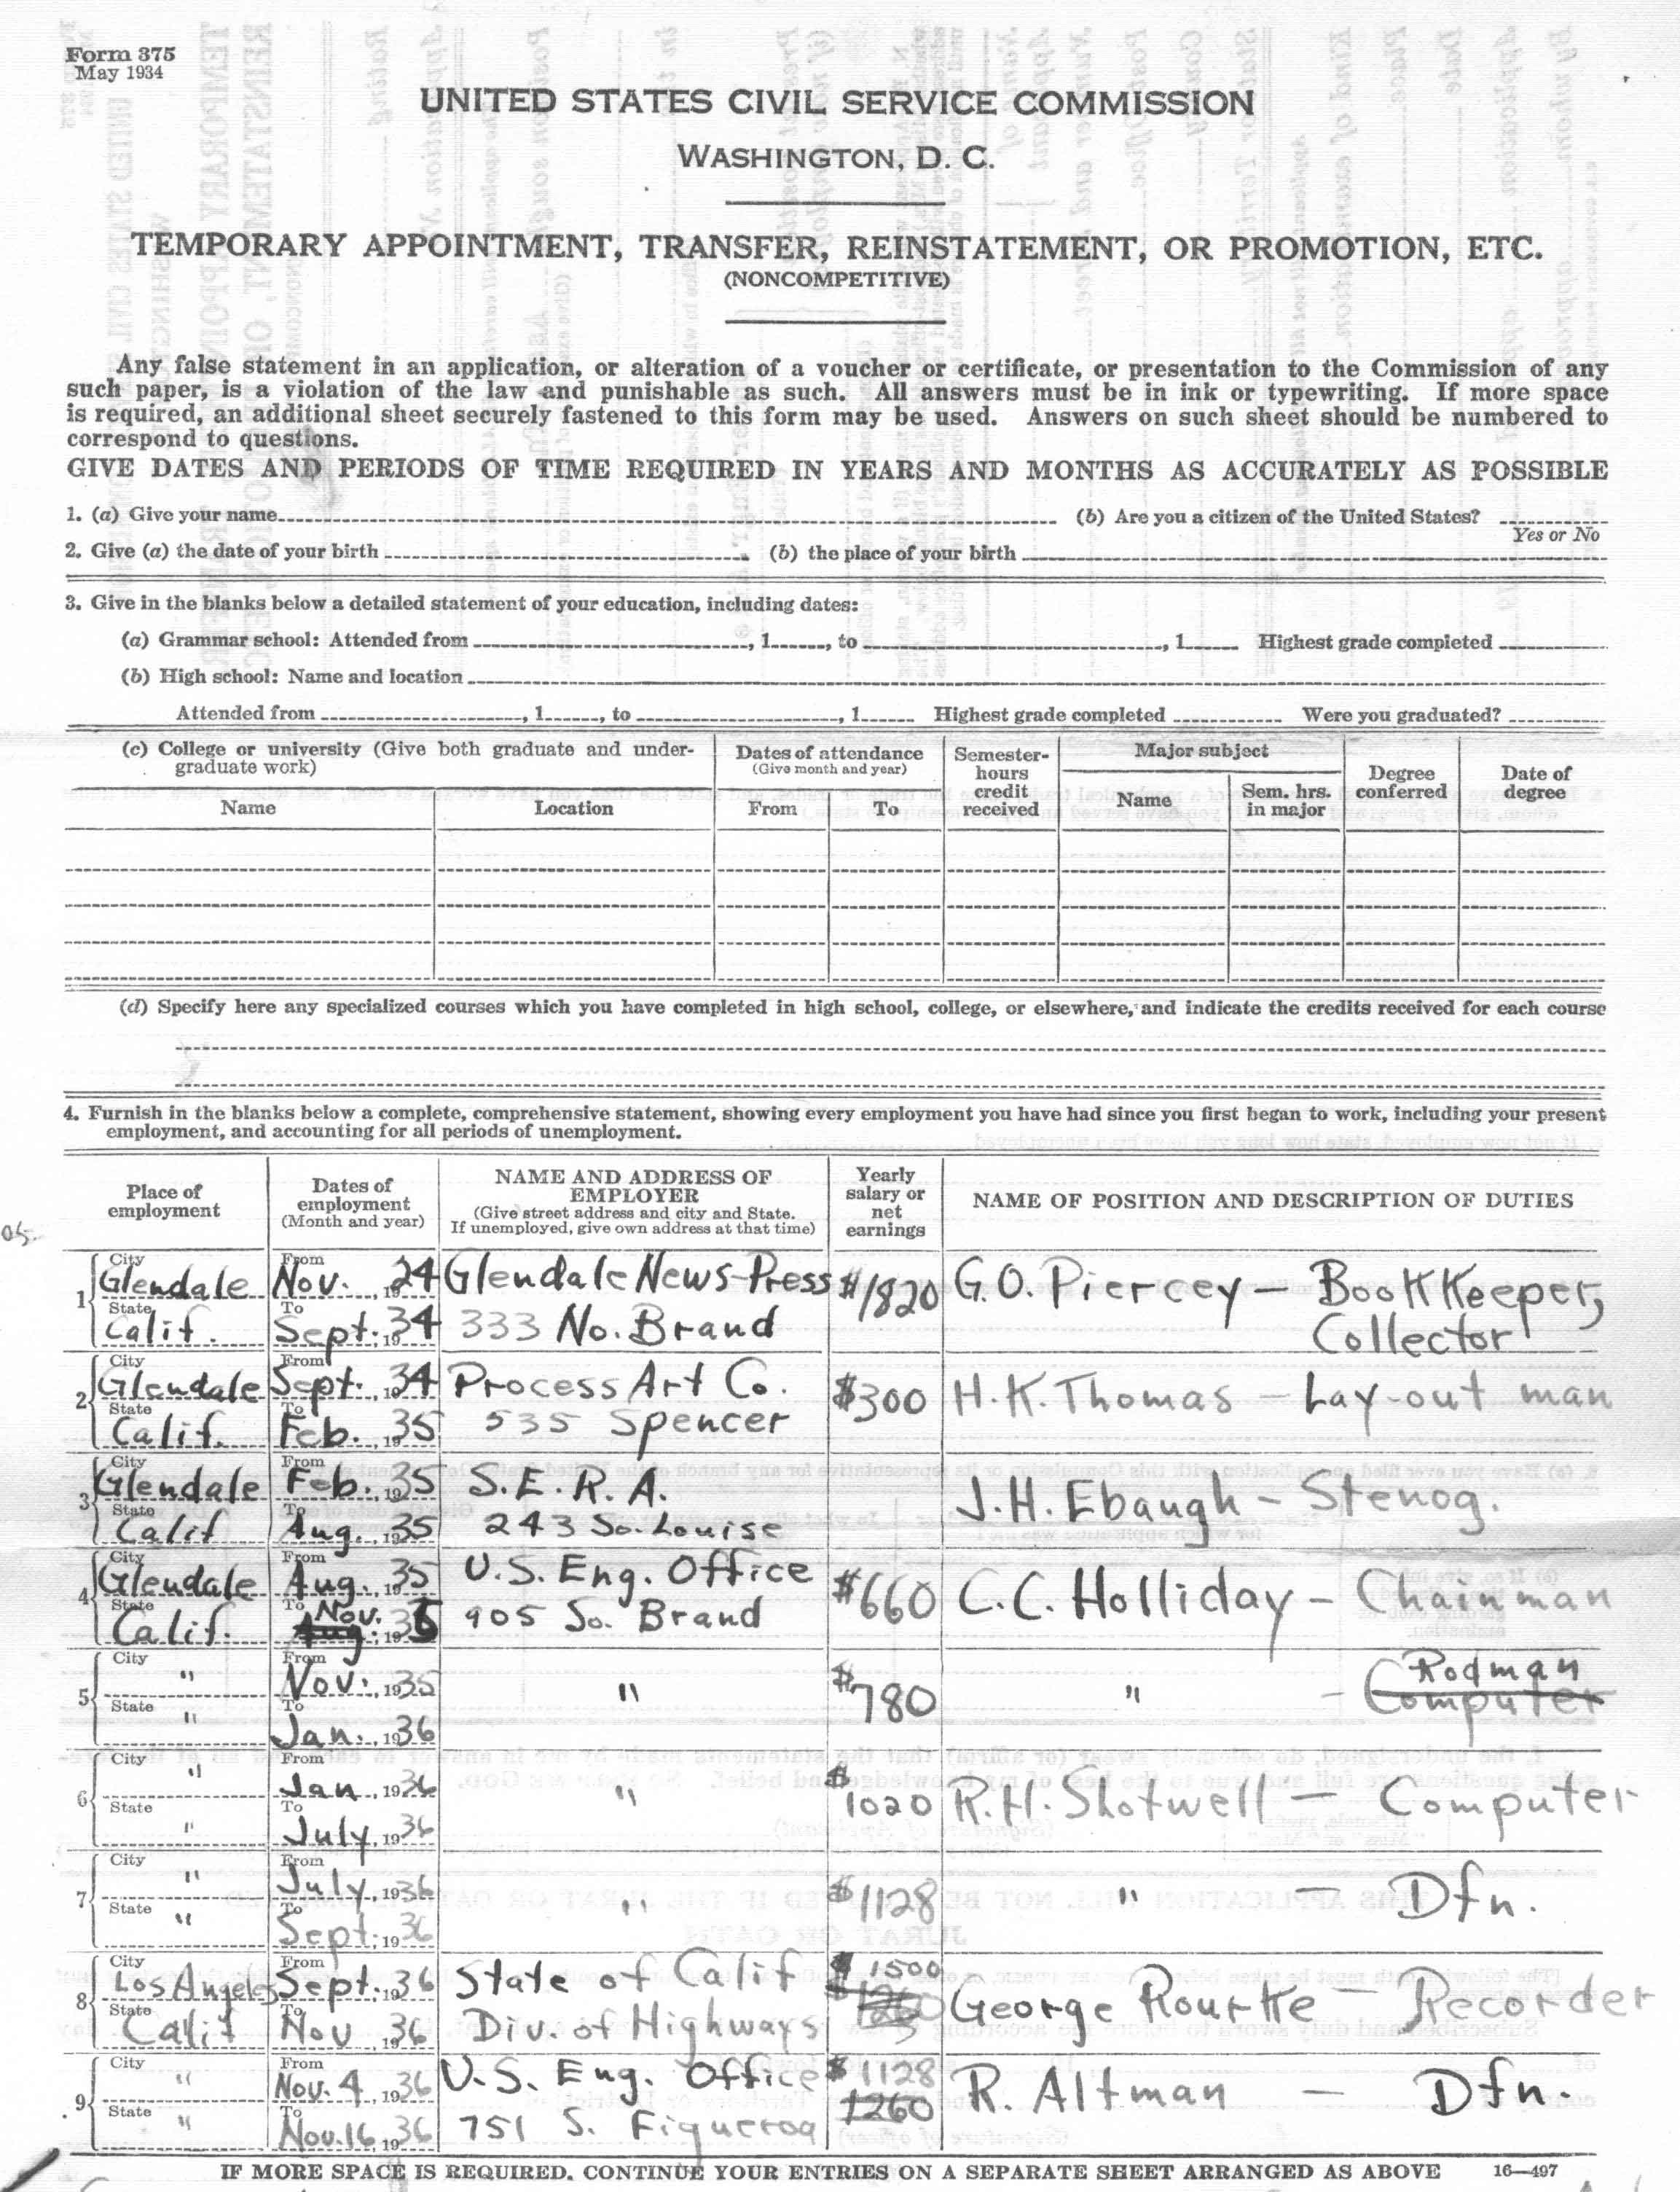 Form 375
May 1934
UNITED STATES CIVIL SERVICE COMMISSION
WASHINGTON, D. C.
TEMPORARY APPOINTMENT, TRANSFER, REINSTATEMENT, OR PROMOTION, ETC.
(NONCOMPETITIVE)
Any false statement in an application, or alteration of a voucher or certificate, or presentation to the Commission of any
such paper, is a violation of the law and punishable as such. All answers must be in ink or typewriting. If more space
is required, an additional sheet securely fastened to this form may be used. Answers on such sheet should be numbered to
correspond to questions.
GIVE DATES AND PERIODS OF TIME REQUIRED IN YEARS AND MONTHS AS ACCURATELY AS POSSIBLE
1. (a) Give your name (b) Are you a citizen of the United States?
Yes or No
2. Give (a) the date of your birth (b) the place of your birth
3. Give in the blanks below a detailed statement of your education, including dates:
(a) Grammar school: Attended from , 1 , to , 1 Highest grade completed
(b) High school: Name and location
Attended from , 1 , to , 1 Highest grade completed Were you graduated?
(c) College or university (Give both graduate and under-
graduate work)
Dates of attendance
(Give month and year)
Semester-
hours
credit
received
Major subject
Degree
conferred
Date of
degree
Name Location From To Name Sem. hrs.
in major
(d) Specify here any specialized courses which you have completed in high school, college, or elsewhere, and indicate the credits received for each course
4. Furnish in the blanks below a complete, comprehensive statement, showing every employment you have had since you first began to work, including your present
employment, and accounting for all periods of unemployment.
Place of
employment
Dates of
employment
(Month and year)
NAME AND ADDRESS OF
EMPLOYER
(Give street address and city and State.
If unemployed, give own address at that time)
Yearly
salary or
net
earnings
NAME OF POSITION AND DESCRIPTION OF DUTIES
1 City From
Glendale Nov. , 1924 Glendale News-Press $1820 G.O. Piercey — Bookkeeper,
State To
Calif. Sept. , 1934 333 No. Brand Collector
2 City From
Glendale Sept. , 1934 Process Art Co. $300 H.K. Thomas — Lay-out man
State To
Calif. Feb. , 1935 535 Spencer
3 City From
Glendale Feb. , 1935 S.E.R.A. J.H. Ebaugh - Stenog.
State To
Calif Aug. , 1935 243 So. Louise
4 City From
Glendale Aug. , 1935 U.S. Eng. Office $660 C.C. Holliday - Chainman
State To Nov.
Calif. Aug. , 1935 905 So. Brand
5 City From Rodman
" Nov. , 1935 " $780 " - Computer
State To
" Jan. , 1936
6 City From
" Jan , 1936 " $1020 R.H. Shotwell — Computer
State To
" July , 1936
7 City From
" July , 1936 " $1128 " — Dfn.
State To
" Sept. , 1936
8 City From
Los Angeles Sept. , 1936 State of Calif $1500
State To
Calif Nov , 1936 Div. of Highways $1260 George Rourke — Recorder
9 City From
" Nov. 4 , 1936 U.S. Eng. Office $1128 R. Altman — Dfn.
State To 1260
" Nov. 16 , 1936 751 S. Figueroa
IF MORE SPACE IS REQUIRED, CONTINUE YOUR ENTRIES ON A SEPARATE SHEET ARRANGED AS ABOVE 16—497